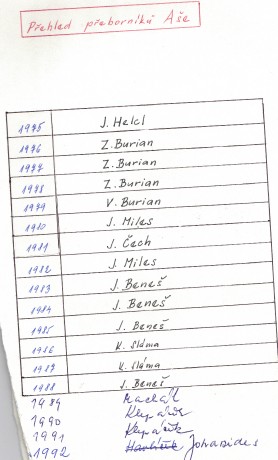 Přehled přeborníků Aše
1975 J. Helcl
1976 Z. Burian
1977 Z. Burian
1978 Z. Burian
1979 V. Burian
1980 J. Miles
1981 J. Čech
1982 J. Miles
1983 J. Beneš
1984 J. Beneš
1985 J. Beneš
1986 K. Sláma
1987 K. Sláma
1988 J. Beneš
1989
1990
1991
1992 Johanides